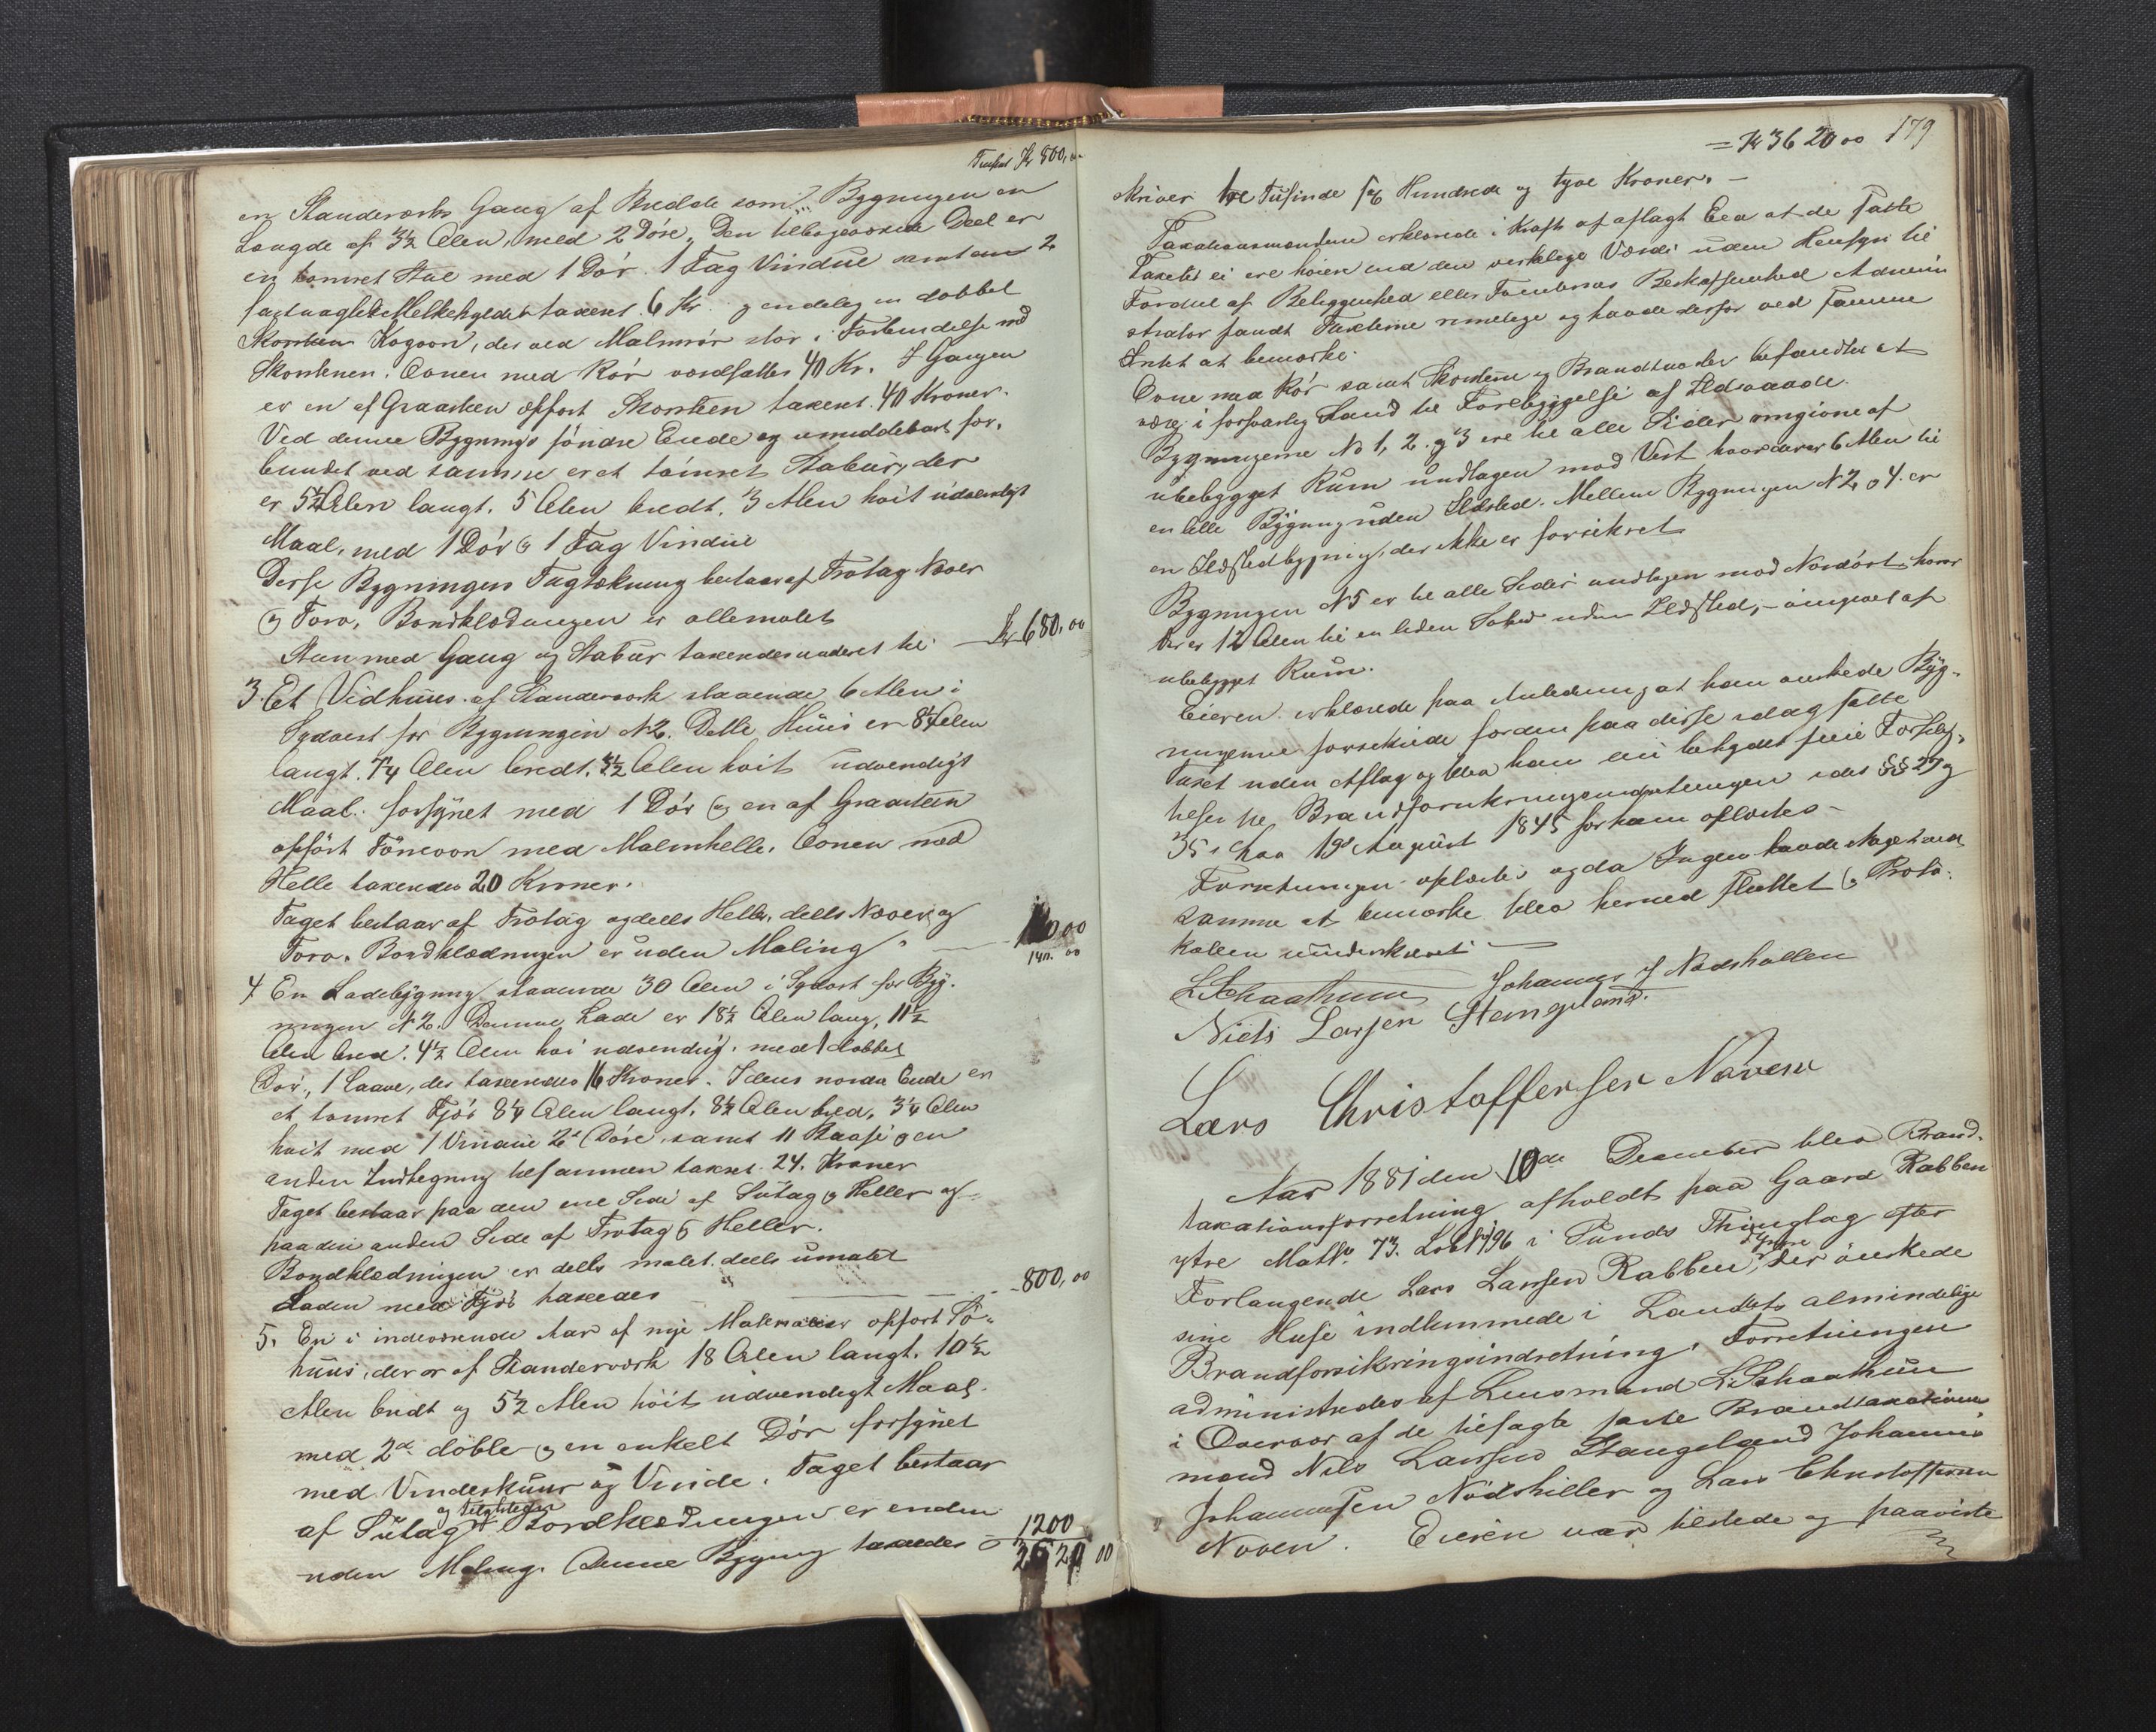 Kr 800,00
en Standerværks Gang af Bredde som Bygningen en
Længde af 3½ Alen, med 2 Döre. Den tilbageværende Deel er
en tömret Stue med 1 Dör. 1 Fag Vindue samt en 2
fags Melkehylde taxeret 6 Kr. og endelig en dobbel
Kogoon, der ved Malmrör står i Forbindelse med
Skorstenen. Ovnen med Rör værdsattes 40 Kr. I Gangen
er en af Graasteen opfört Skorsteen taxeret. 40 Kroner.
Ved denne Bygnings söndre Ende og umiddelbart for,
bundet ved samme er et tömret Stabur, der
er 5½ Alen langt. 5 Alen bredt. 3 Alen höit udvendigt
Maal, med 1 Dör & 1 Fag Vindue
Disse Bygningers Tagtækning bestaar af Trotag Næver
& Torv, Bordklædningen er ollemalet
Stuen med Gang og Stabur taxeredes til — Kr 680,00
3. Et Vidhuus af Standerværk staaende 6 Alen i
Sydvest for Bygningen No 2. Dette Huus er 8¼ Alen
langt. 7¼ Alen bredt, 3½ Alen höit udvendigt
Maal. forsynet med 1 Dör & en af Graasteen
opfört Ovn med Malmhelle. Ovnen med
Helle taxeredes 20 Kroner.
Taget bestaar af Trotag og deels Heller, deels Næver og
Torv. Bordklædningen er uden Maling — 00
140. 00
4 En Ladebygning staaende 30 Alen i Sydost for Byg-
ningen No 2. Denne Lade er 18½ Alen lang, 11½
Alen bred. 4½ Alen höi udvendig. med 1 dobbel
Dör, 1 Laave, der taxeredes 16 Kroner. I dens nordre Ende er
et tömret Fjös 8¼ Alen langt, 8½ Alen bred, 3¼ Alen
höit med 1 Vindue 2de Döre, samt 11 Baase og en
anden Indhegning tilsammen taxeret 24. Kroner
Taget bestaar paa den ene Side af Sutag & Heller og
paa den anden Side af Trotag & Heller.
Bordklædningen er deels malet deels umalet
Laden med Fjös taxeredes — 800,00
5. En i indeværende Aar af nye Materialier opfört Sö-
huus, der er af Standerværk 18 Alen langt. 10½
Alen bredt og 5½ Alen höit udvendigt Maal.
med 2de doble & en enkelt Dör forsynet
med Vindeskuur og Vinde. Taget bestaar
og Teglsteen
af Sutag Bordklædningen er endnu
uden Maling. Denne Bygning taxeredes 1200
3620 00
= Kr 3620 00 179
skriver tre Tusinde sex Hundrede og tyve Kroner. —
Taxationsmændene erklærede i Kraft af aflagt Eed at de satte
Taxter ei ere höiere end den verkelige Værdi uden Hensyn til
Fordeel af Beliggenhed eller Tomternes Beskaffenhed Admini
strator fandt Taxterne rimelige og havde derfor ved samme
Intet at bemærke.
Ovne med Rör samt Skorstene og Brandmurer befandtes at
være i forsvarlig Stand til Forebyggelse af Ildsvaade.
Bygningerne No 1, 2 og 3 ere til alle Sider omgivne af
ubebygget Rum undtagen mod Vest hvor der er 6 Alen til
en lille Bygning uden Ildsted. Mellem Bygningen No 2 & 4 er
en Ildstedbygning, der ikke er forsikret
Bygningen No 5 er til alle Sider undtagen mod Nordost, hvor
der er 12 Alen til en liden Söbod uden Ildsted, — omgivet af
ubebygget Rum.
Eieren erklærede paa Anledning at han önskede Byg-
ningerne forsikrede for den paa disse idag satte
Taxt uden Afslag og blev han
Brandforsikringsindretningen §§ 27 og
35 i Lov 19de August 1845 for ham oplæstes —
Forretningen oplæstes og da Ingen havde Noget ved
samme at bemærke blev hermed sluttet & Proto-
kollen underskrevet —
L Schaathun Johannes J Nodshellen
Niels Larsen Stangeland.
Lars Christoffersen Noven
Aar 1881 den 10de December blev Brand-
taxationsforretning afholdt paa Gaard Rabben
ytre Matr. 73. Löb No 196 i Sunds Thinglag efter
ytre
Forlangende Lars Larsen Rabben, der önskede
sine Huse indlemmede i Landets almindelige
Brandforsikringsindretning. Forretningen
administredes af Lensmand L. Schaathun
i Overvær af de tilsagte faste Brandtaxations
mænd Nils Larsen Stangeland Johannes
Johannessen Nödshillen og Lars Christoffersen
Noven. Eieren var tilstede og paaviste